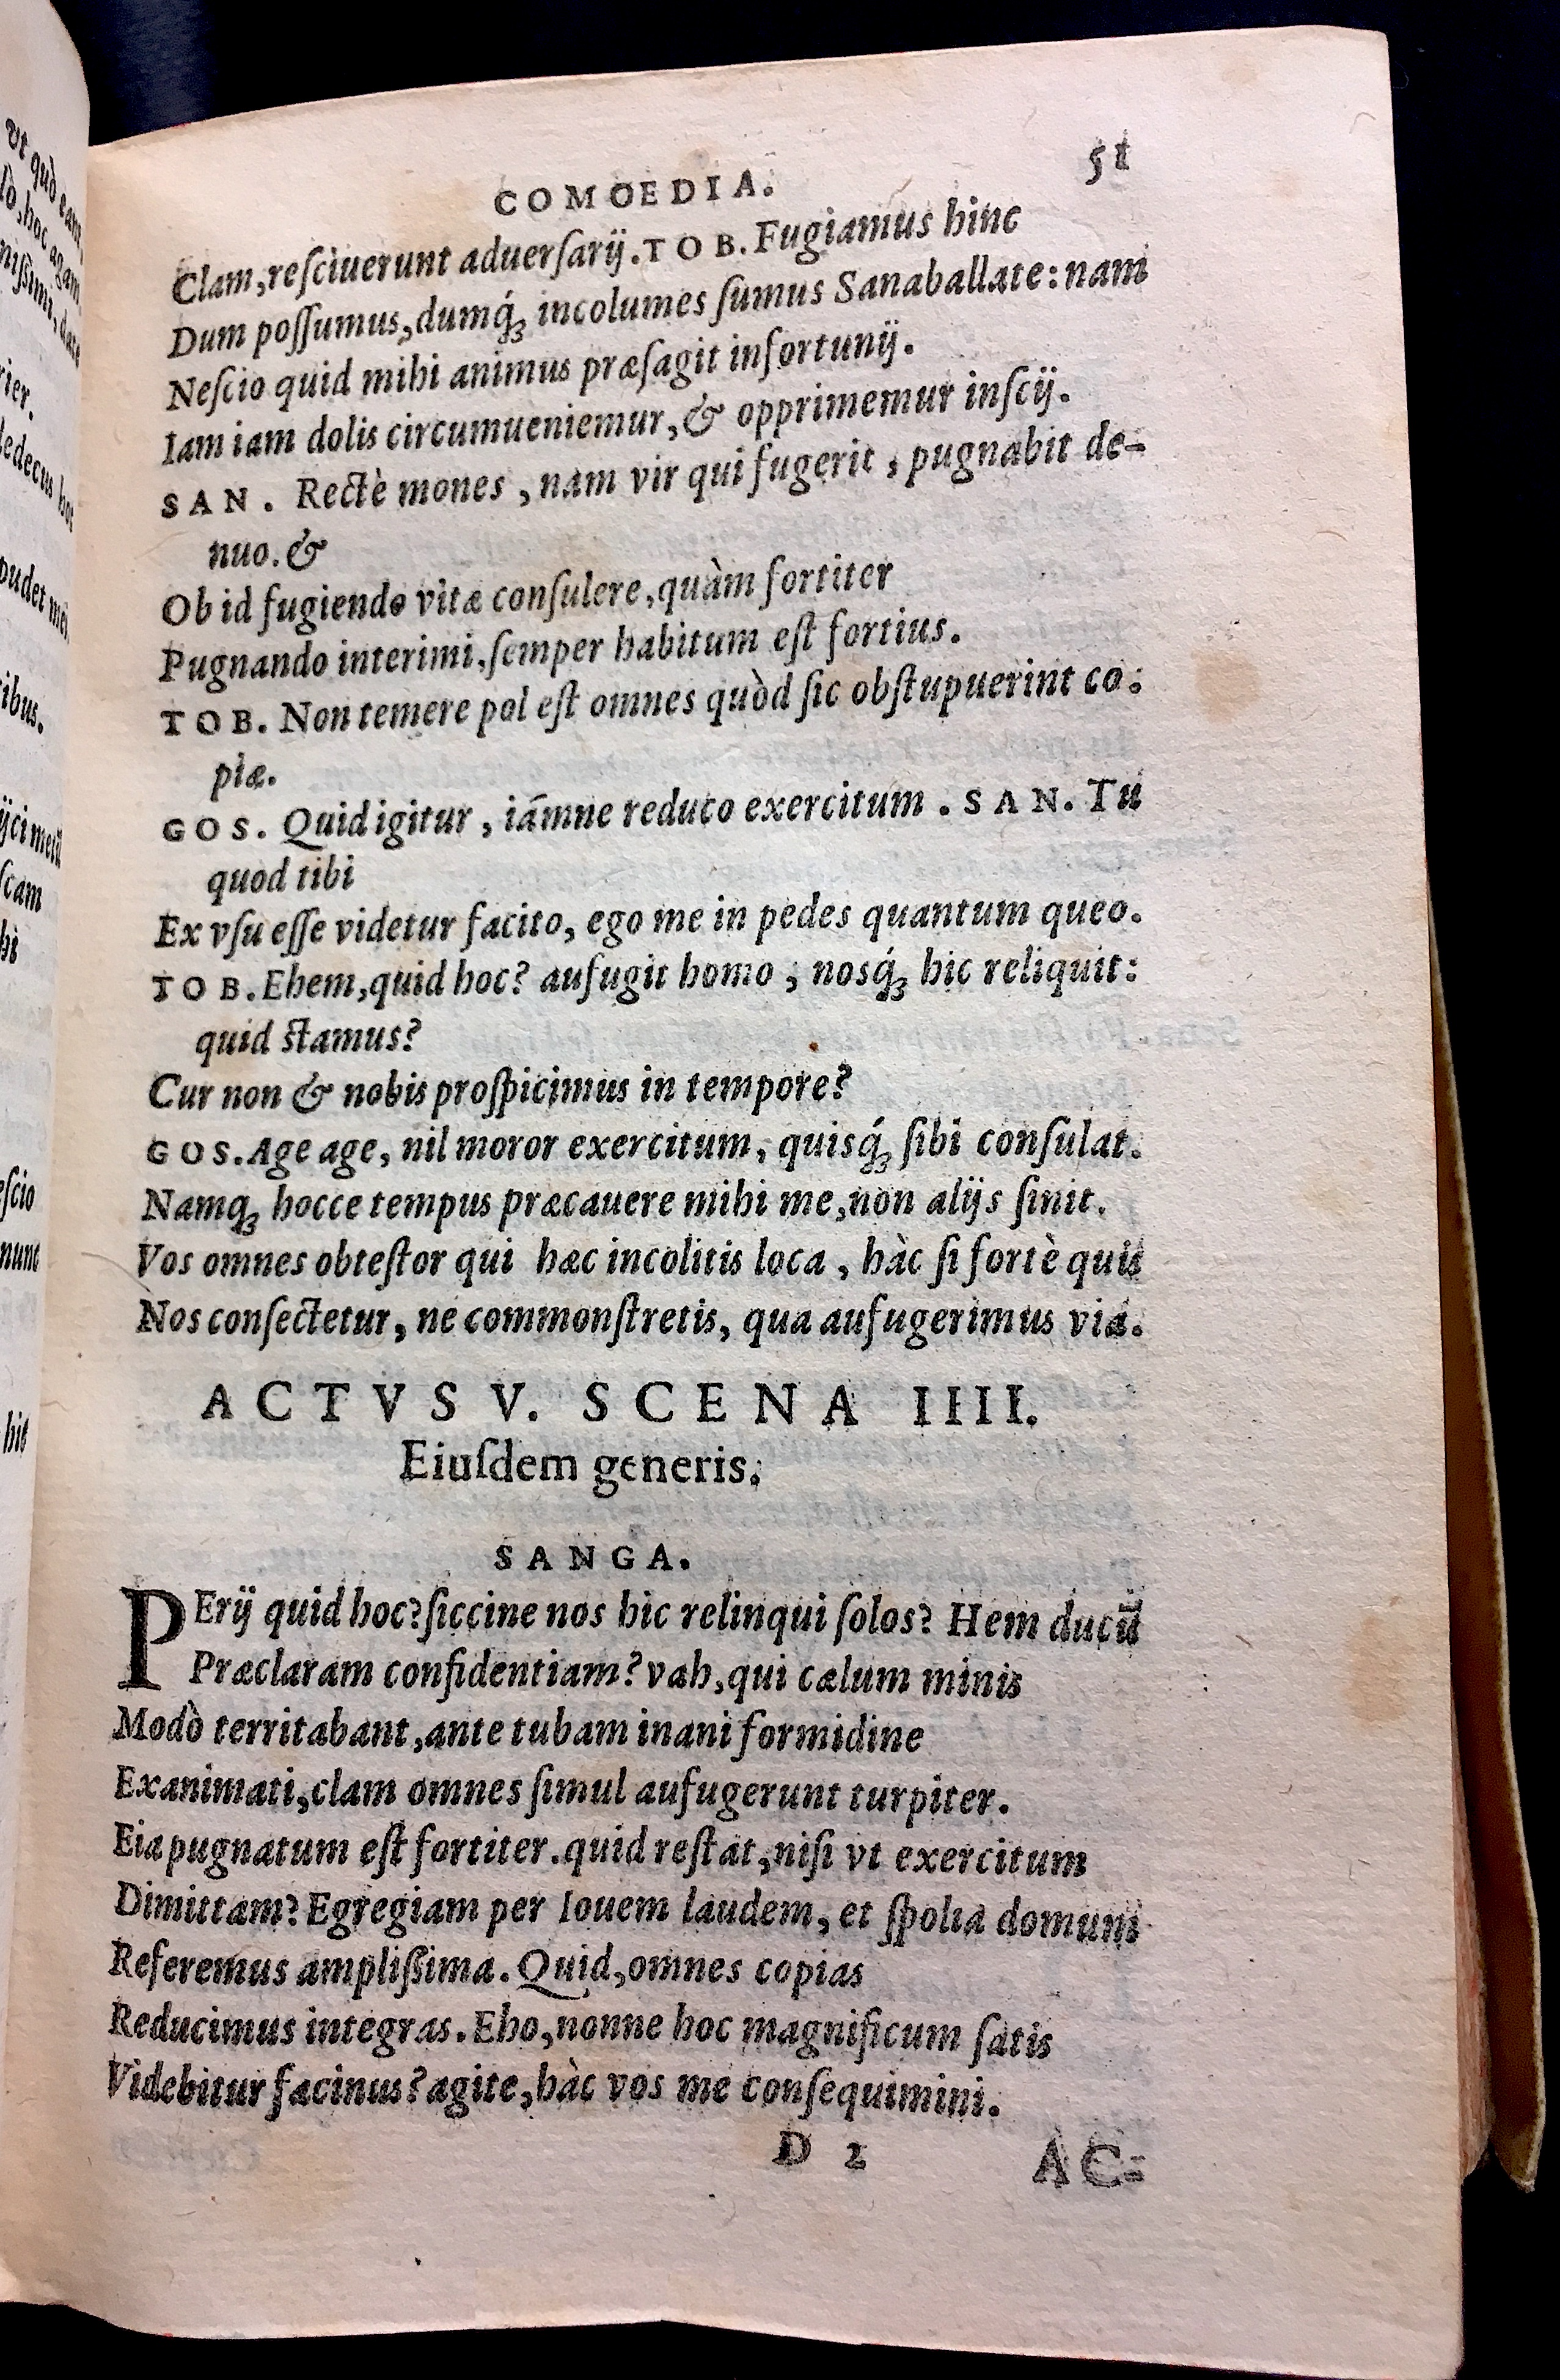 COMOEDIA. 51
Clam,reſciuerunt aduerſarij.TOB.Fugiamus hinc
Dum poſſumus,dumq́ꝫ incolumes ſumus Sanaballate:nam
Neſcio quid mihi animus præſagit infortunij.
Iam iam dolis circumueniemur,& opprimemur inſcij.
SAN. Rectè mones , nam vir qui fugerit , pugnabit de-
nuo.&
Ob id fugiendo vitæ conſulere,quàm fortiter
Pugnando interimi,ſemper habitum eſt fortius.
TOB. Non temere pol eſt omnes quòd ſic obſtupuerint co-
piæ.
GOS. Quid igitur , iámne reduco exercitum . SAN. Tu
quod tibi
Ex vſu eſſe videtur facito, ego me in pedes quantum queo.
TOB.Ehem,quid hoc? aufugit homo , nosq́ꝫ hic reliquit:
quid ſtamus?
Cur non & nobis proſpicimus in tempore?
GOS.Age age, nil moror exercitum, quisq́ꝫ ſibi conſulat.
Namqꝫ hocce tempus præcauere mihi me,non alijs ſinit.
Vos omnes obteſtor qui hæc incolitis loca , hàc ſi fortè quis
Nos conſectetur, ne commonſtretis, qua aufugerimus via.
ACTVS V. SCENA IIII.
Eiuſdem generis.
SANGA.
PErij quid hoc?ſiccine nos hic relinqui ſolos? Hem ducū
Præclaram confidentiam? vah,qui cælum minis
Modò territabant,ante tubam inani formidine
Exanimati,clam omnes ſimul aufugerunt turpiter.
Eia pugnatum eſt fortiter.quid reſtat,niſi vt exercitum
Dimittam? Egregiam per Iouem laudem, et ſpolia domum
Referemus ampliſsima. Quid,omnes copias
Reducimus integras. Eho,nonne hoc magnificum ſatis
Videbitur facinus? agite,hàc vos me conſequimini.
D 2 AC-